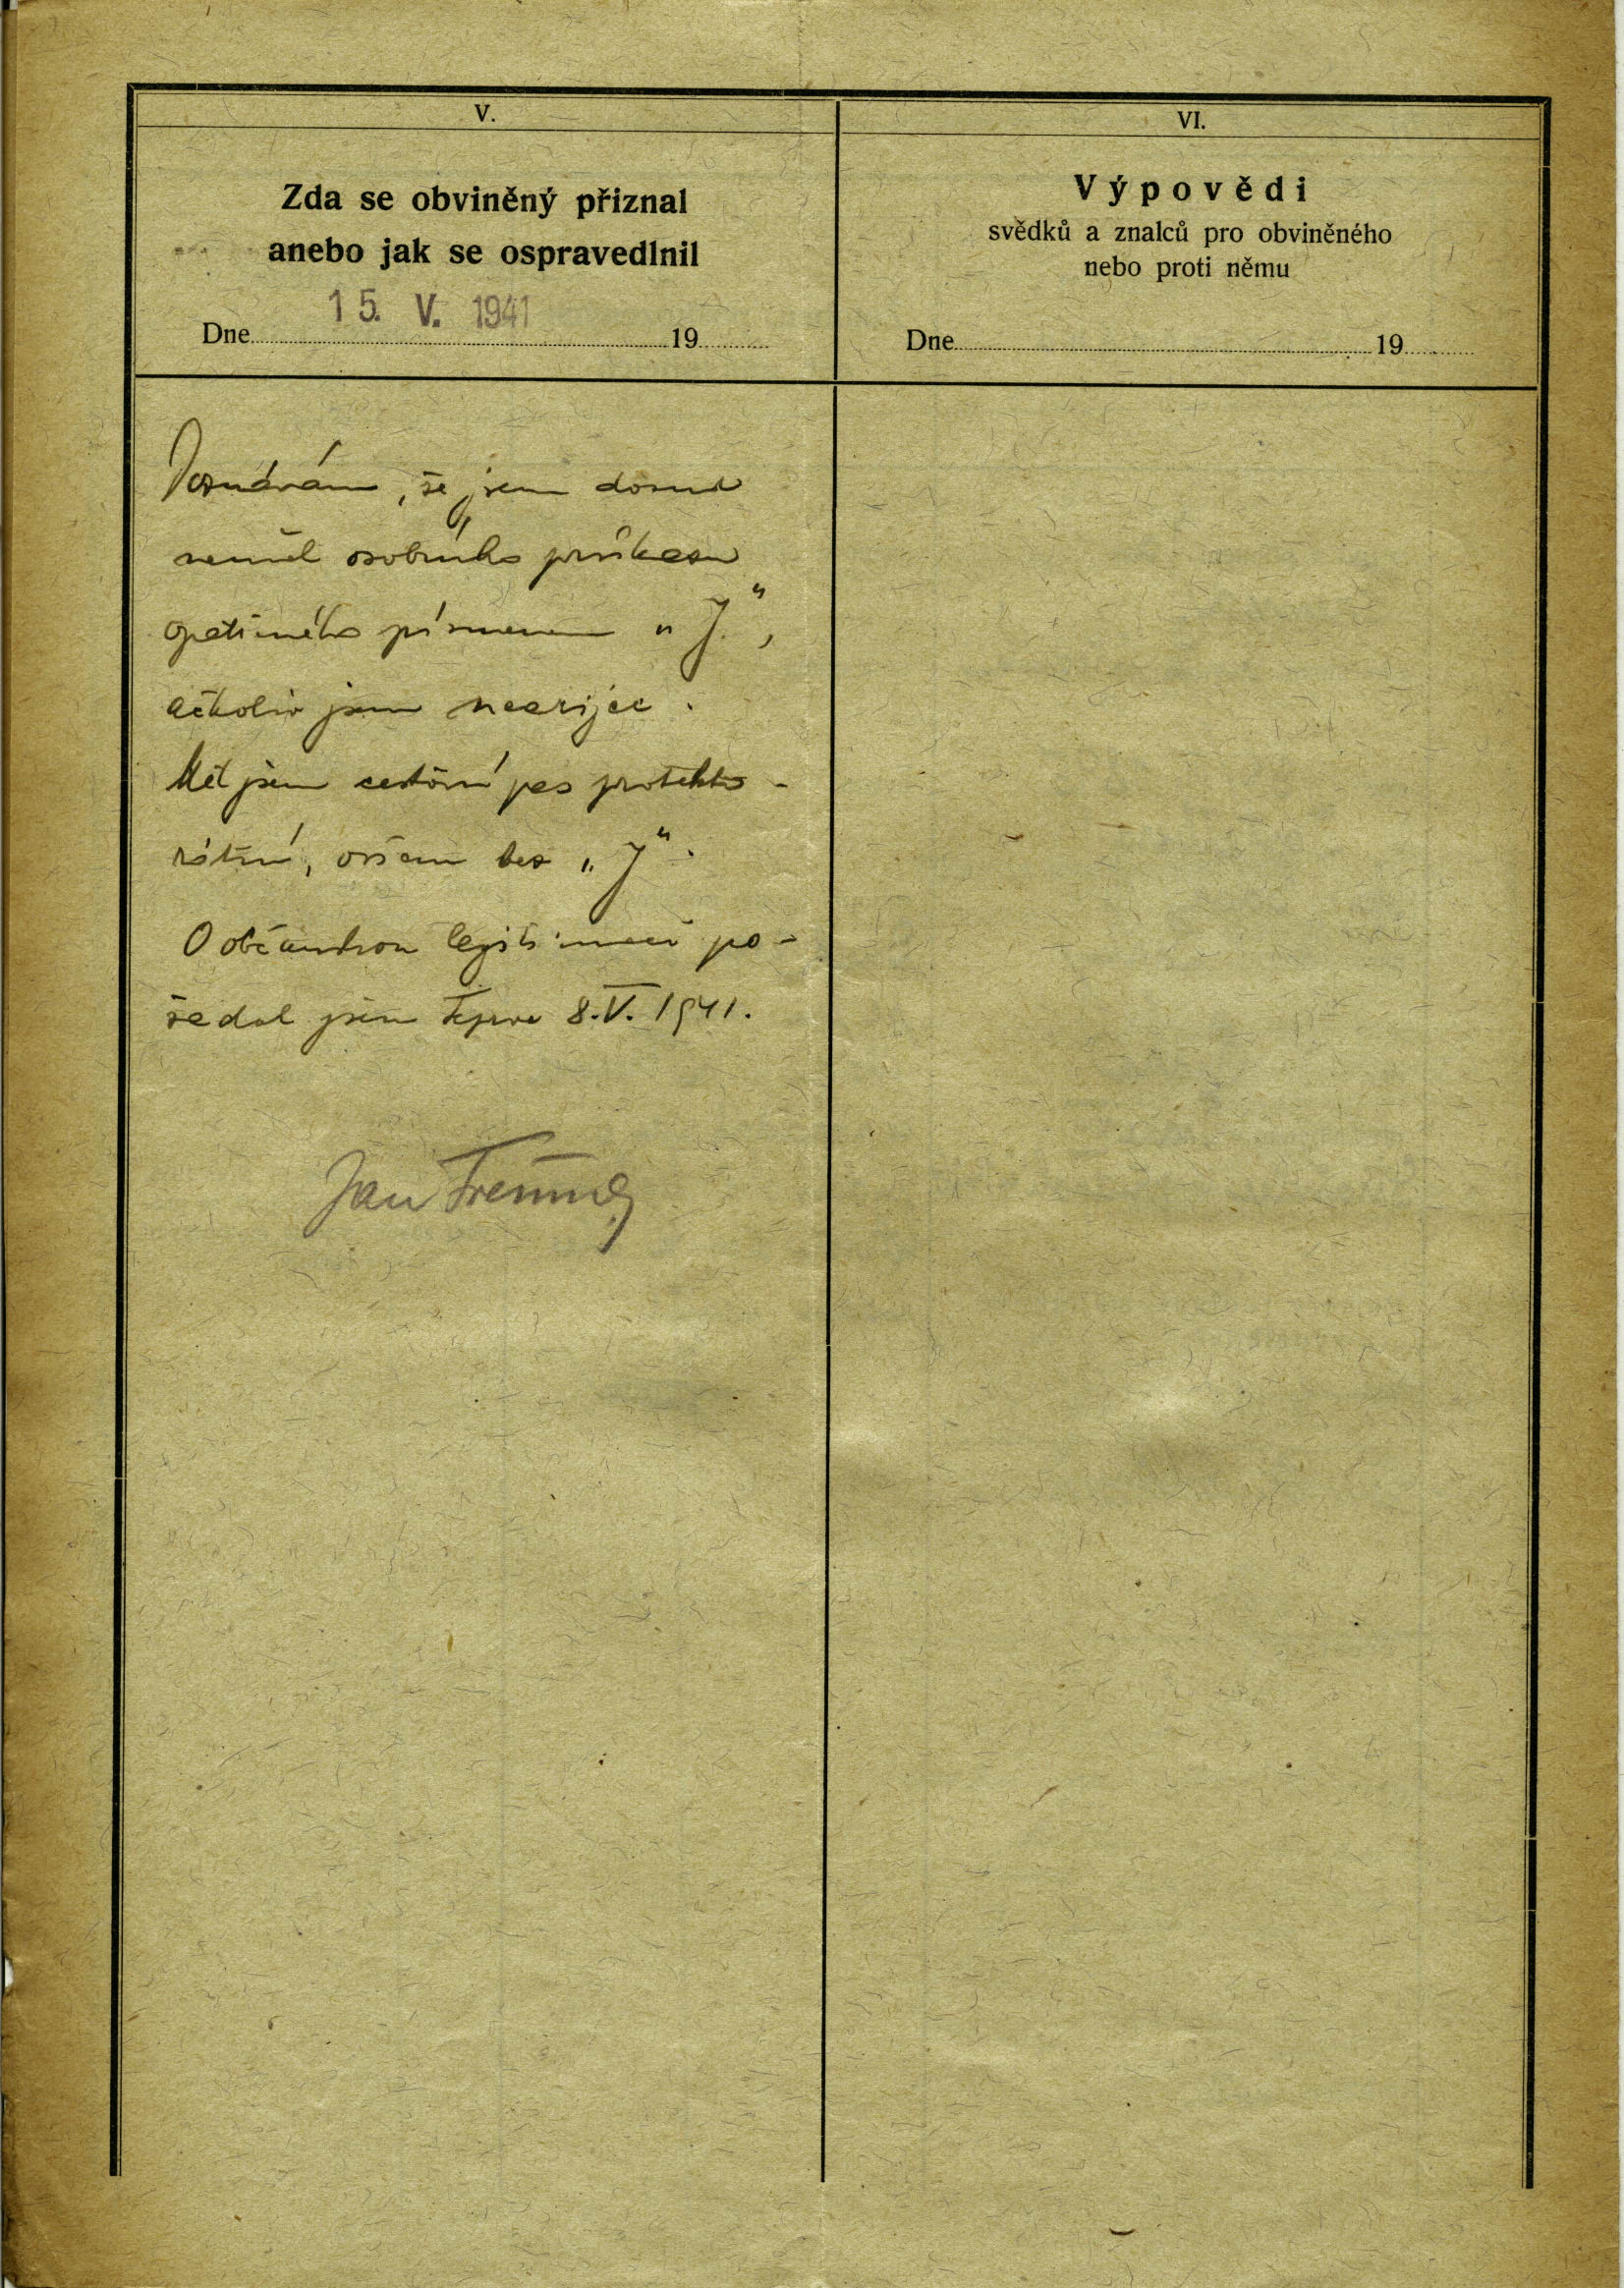 V.
Zda se obviněný přiznal
anebo jak se ospravedlnil
15. V. 1941
Dne 19
VI.
Výpovědi
svědků a znalců pro obviněného
nebo proti němu
Dne 19
Doznávám, že jsem dosud
neměl osobního průkazu
opatřeného písmenem „J.“,
ačkoliv jsem nearijec.
Měl jsem cestovní pas protekto-
rátní, ovšem bez „J“.
O občanskou legitimaci po-
žádal jsem teprve 8.V. 1941.
Jan